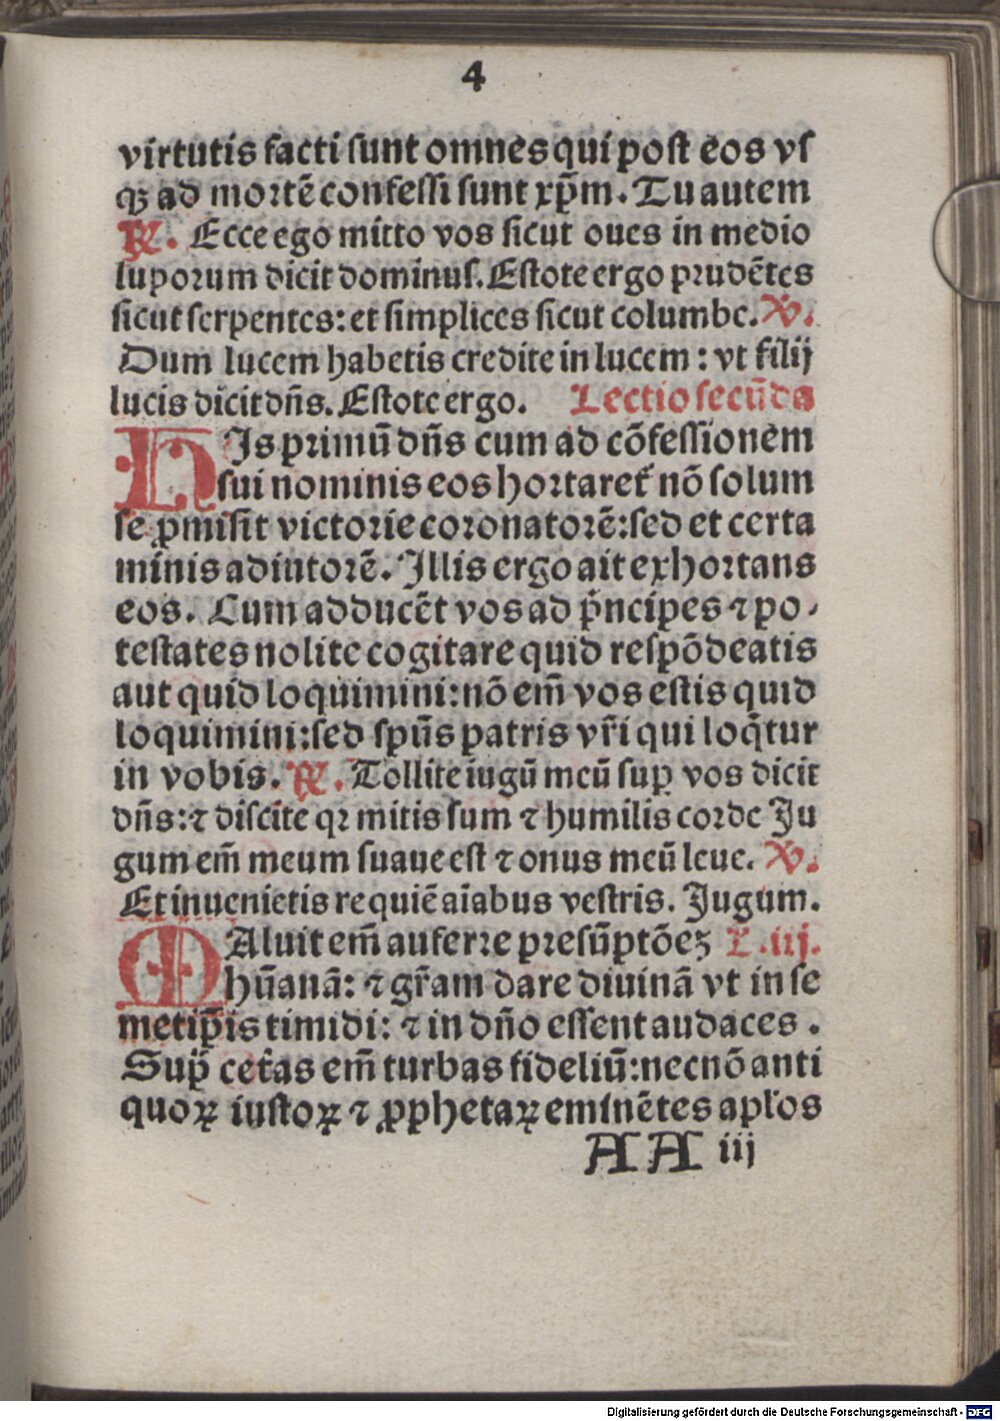 4
virtutis facti sunt omnes qui post eos vſ
qꝫ ad mortē confessi sunt xp̄m. Tu autem
℟. Ecce ego mitto vos sicut oues in medio
luporum dicit dominus. Estote ergo prudētes
sicut serpentes: et simplices sicut columbe. ℣.
Dum lucem habetis credite in lucem: vt filij
lucis dicit dn̄s. Estote ergo. Lectio secūda
HIs primū dn̄s cum ad cōfessionem
sui nominis eos hortaret᷑ nō solum
se ꝓmisit victorie coronatorē: sed et certa
minis adiutorē. Illis ergo ait exhortans
eos. Cum adducēt vos ad p̄ncipes ⁊ po-
testates nolite cogitare quid respōdeatis
aut quid loquimini: nō em̄ vos estis quid
loquimini: sed spūs patris vr̄i qui loq̄tur
in vobis. ℟. Tollite iugū meū suꝑ vos dicit
dn̄s: ⁊ discite qꝛ mitis sum ⁊ humilis corde Iu
gum em̄ meum suaue est ⁊ onus meū leue. ℣.
Et inuenietis requiē aīabus vestris. Jugum.
MAluit em̄ auferre presūptōeꝫ L. iij.
hūanā: ⁊ gr̄am dare diuinā vt in se
metip̄is timidi: ⁊ in dn̄o essent audaces.
Suꝑ cet̄as em̄ turbas fideliū: necnō anti
quoꝝ iustoꝝ ⁊ ꝓphetaꝝ eminētes apl̓os
AA iij
Digitalisierung gefördert durch die Deutsche Forschungsgemeinschaft - DFG